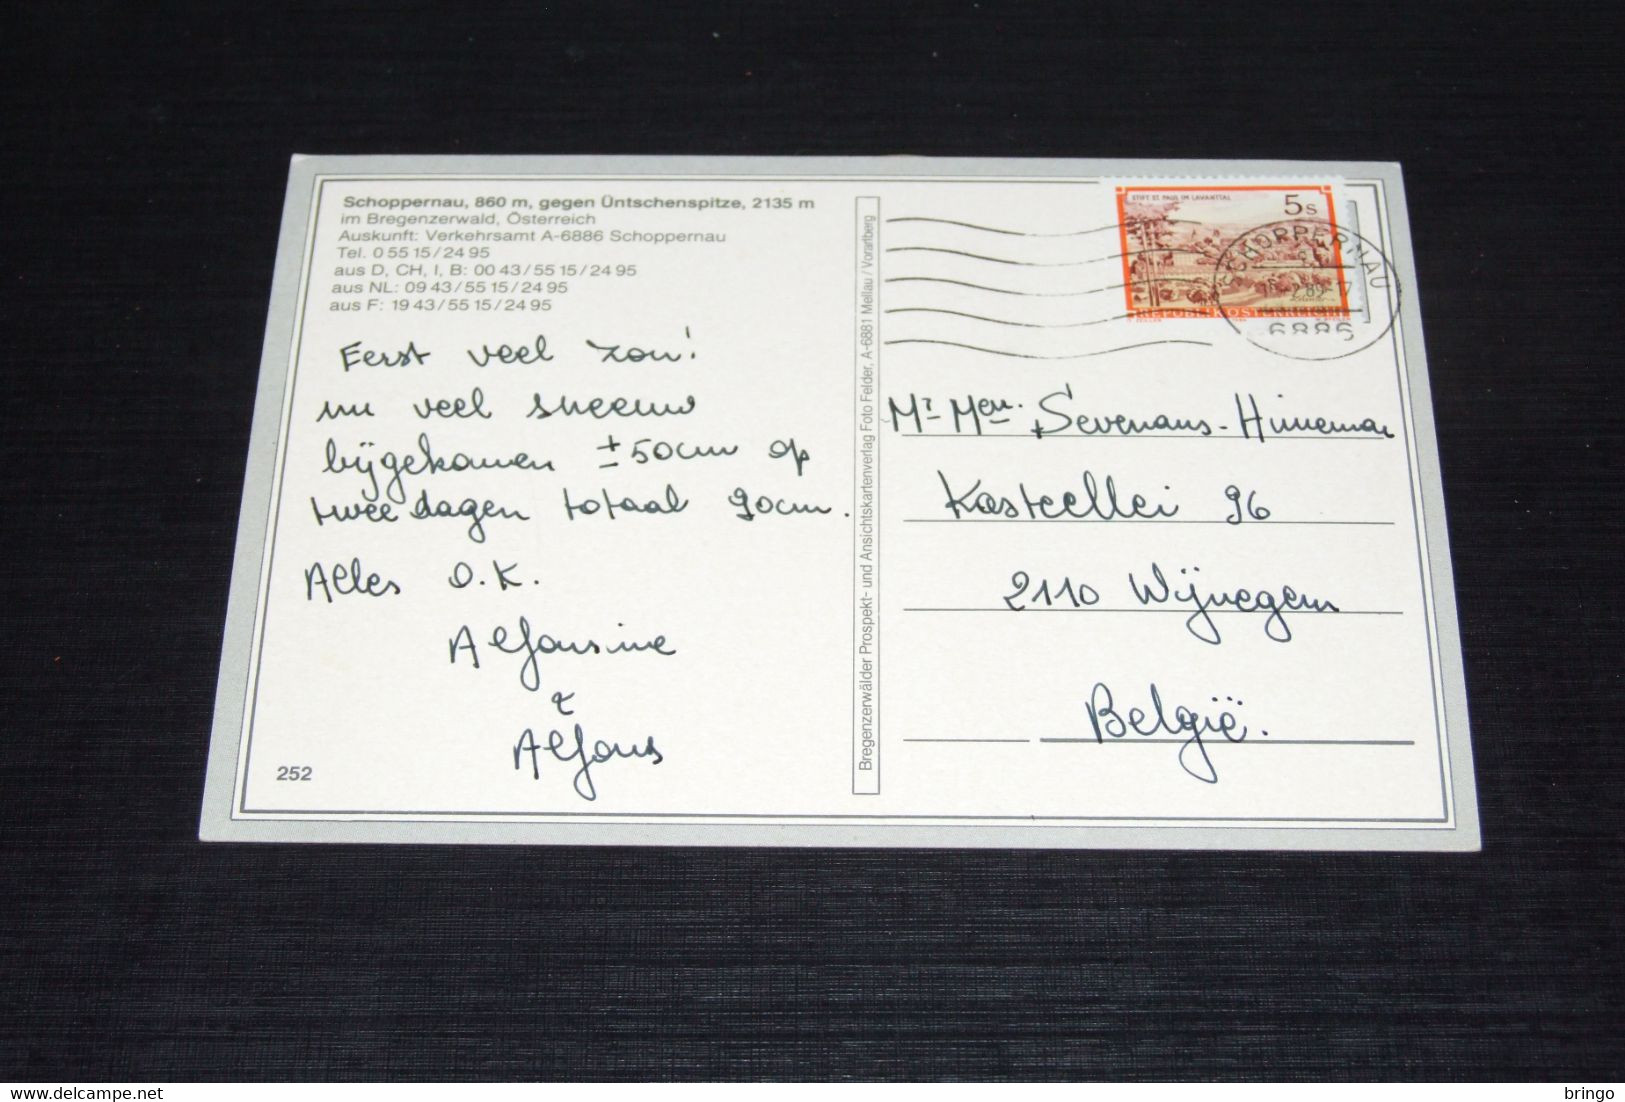 Schoppernau, 860 m, gegen Üntschenspitze, 2135 m
im Bregenzerwald, Österreich
Auskunft: Verkehrsamt A-6886 Schoppernau
Tel. 0 55 15 / 24 95
aus D, CH, I, B: 00 43 / 55 15 / 24 95
aus NL: 09 43 / 55 15 / 24 95
aus F: 19 43 / 55 15 / 24 95
Eerst veel zon!
nu veel sneeuw
bijgekomen ± 50cm op
twee dagen totaal 90cm.
Alles O.K.
Alfonsine
&
Alfons
252
Bregenzerwälder Prospekt- und Ansichtskartenverlag Foto Felder, A-6881 Mellau / Vorarlberg
STIFT ST. PAUL IM LAVANTTAL
5s
REPUBLIK ÖSTERREICH
SCHOPPERNAU
6886
Mr Meu. Sevenans-Hinneman
Kasteellei 96
2110 Wijnegem
België.
delcampe.net
bringo